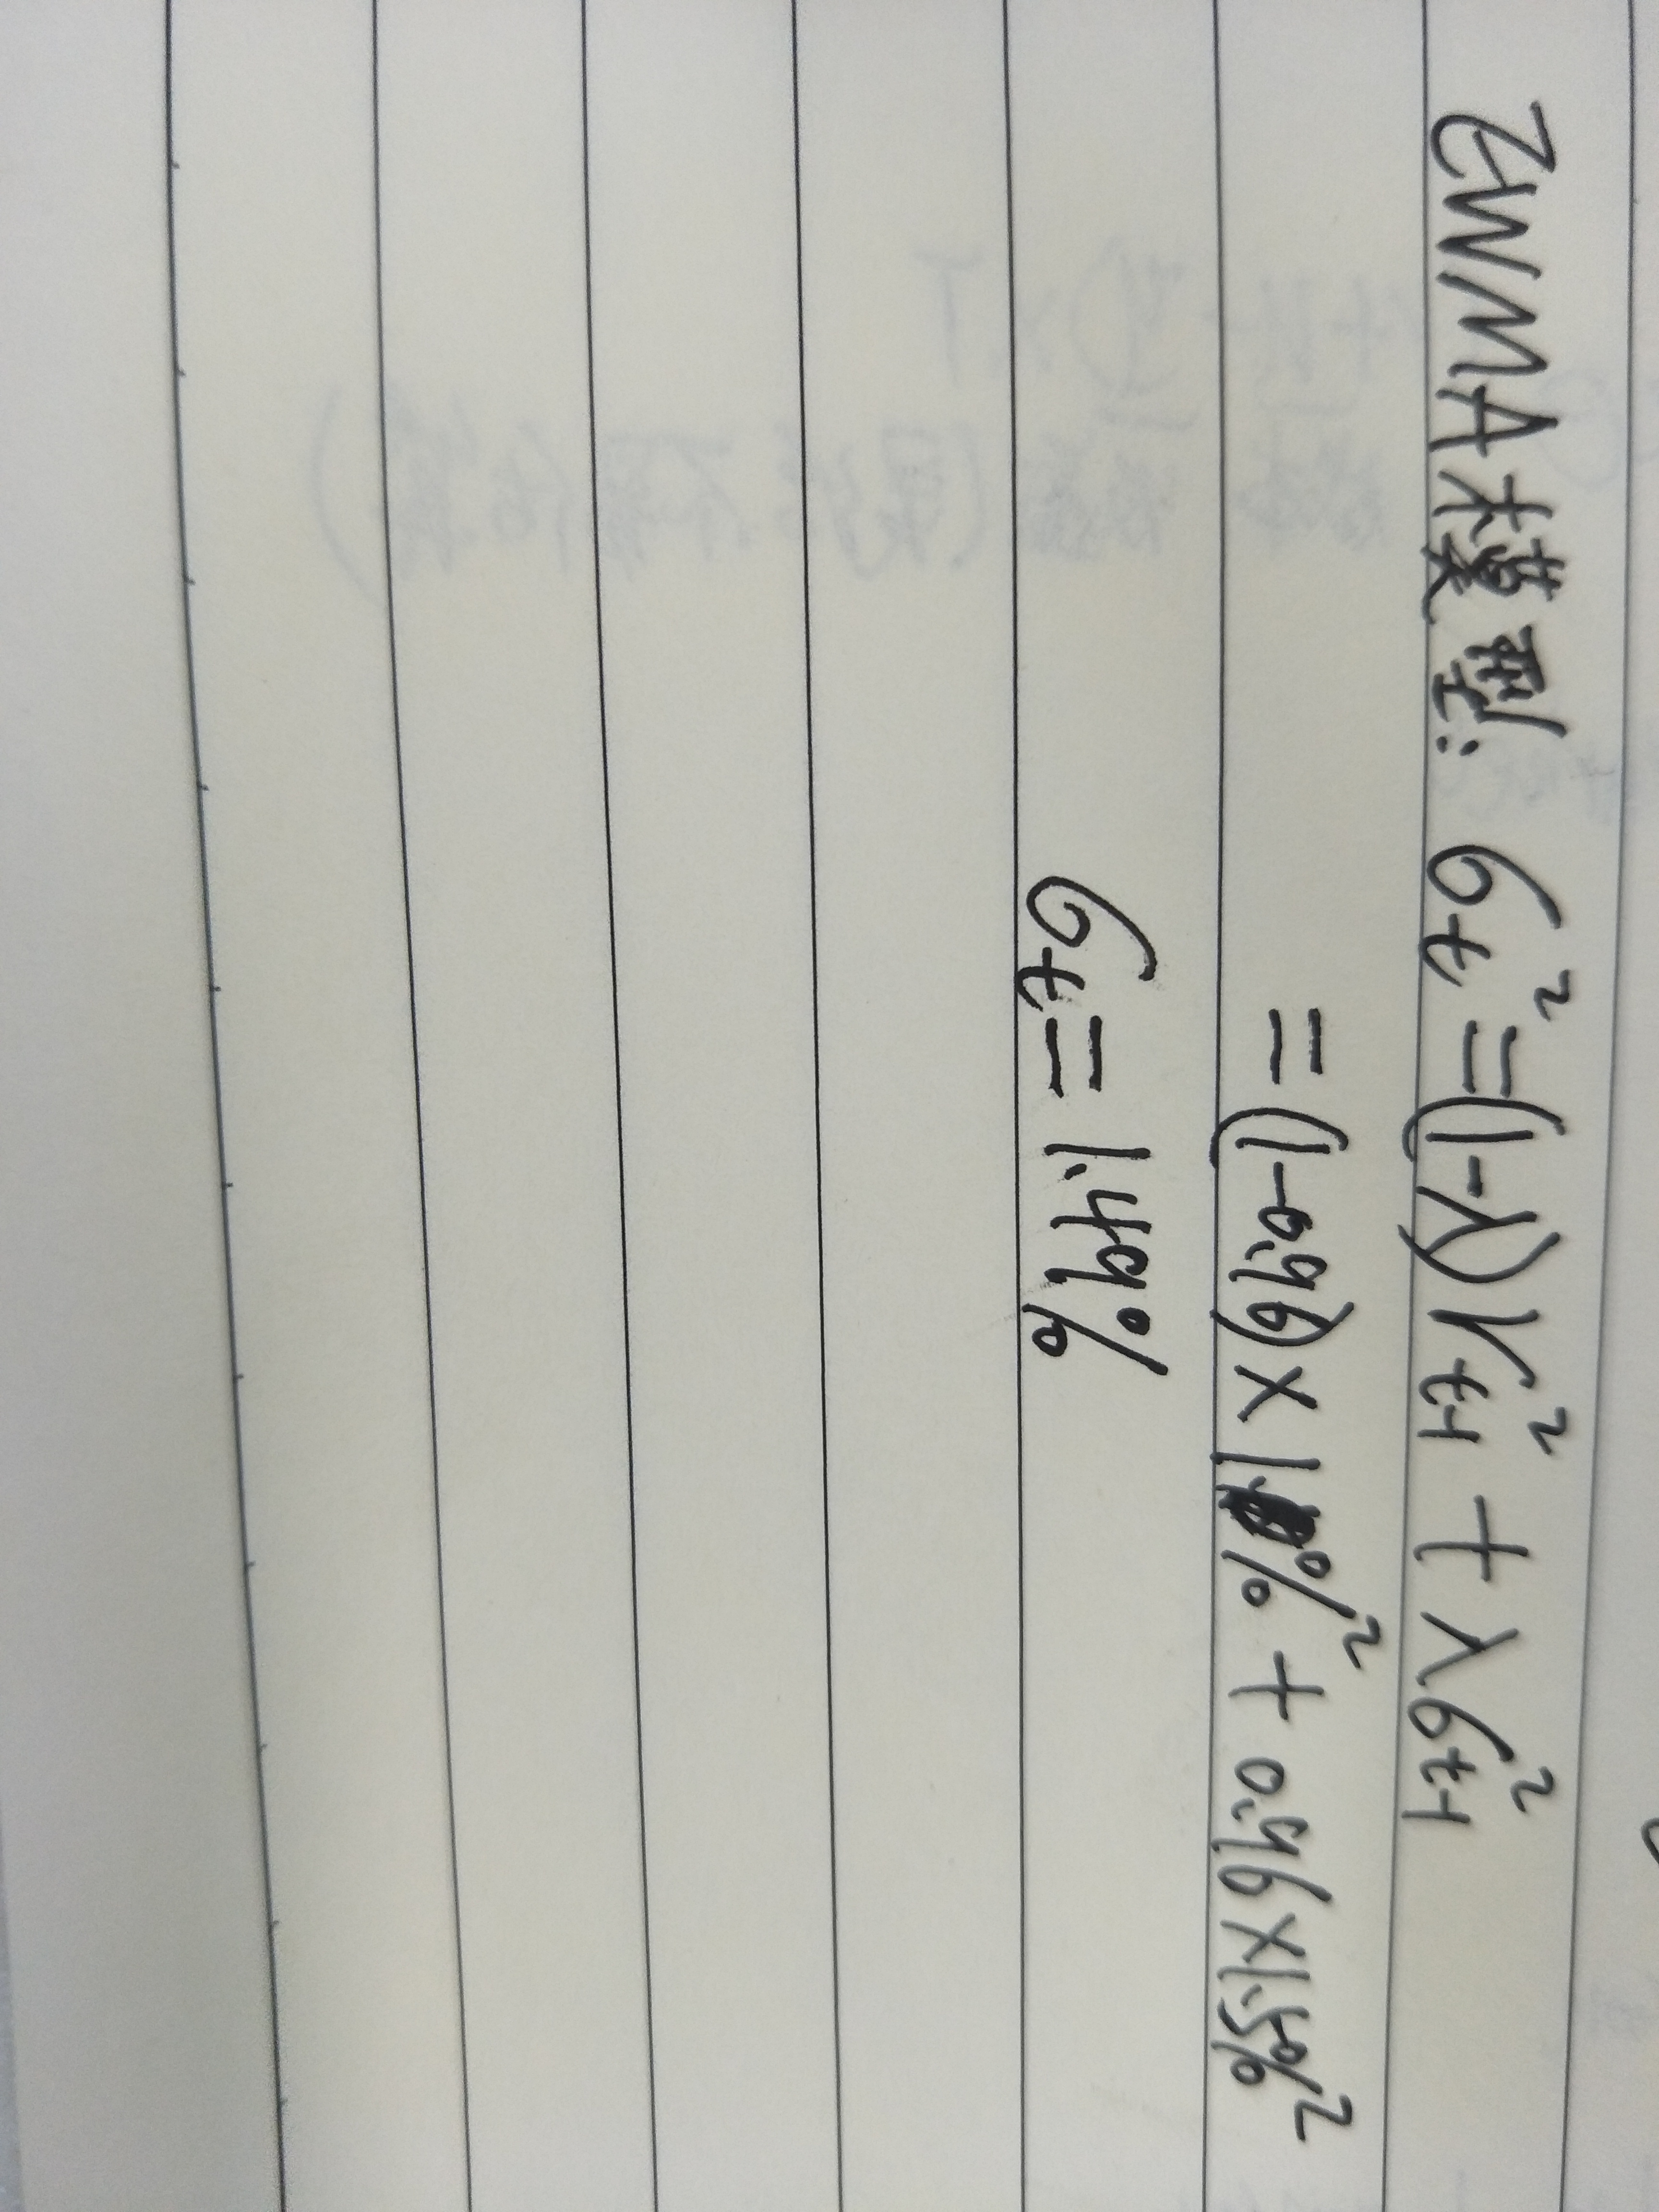 EWMA模型: σt² = (1-λ)rt-1² + λσt-1²
= (1-0.96) × 1.% ² + 0.96×1.5%²
σt = 1.49%